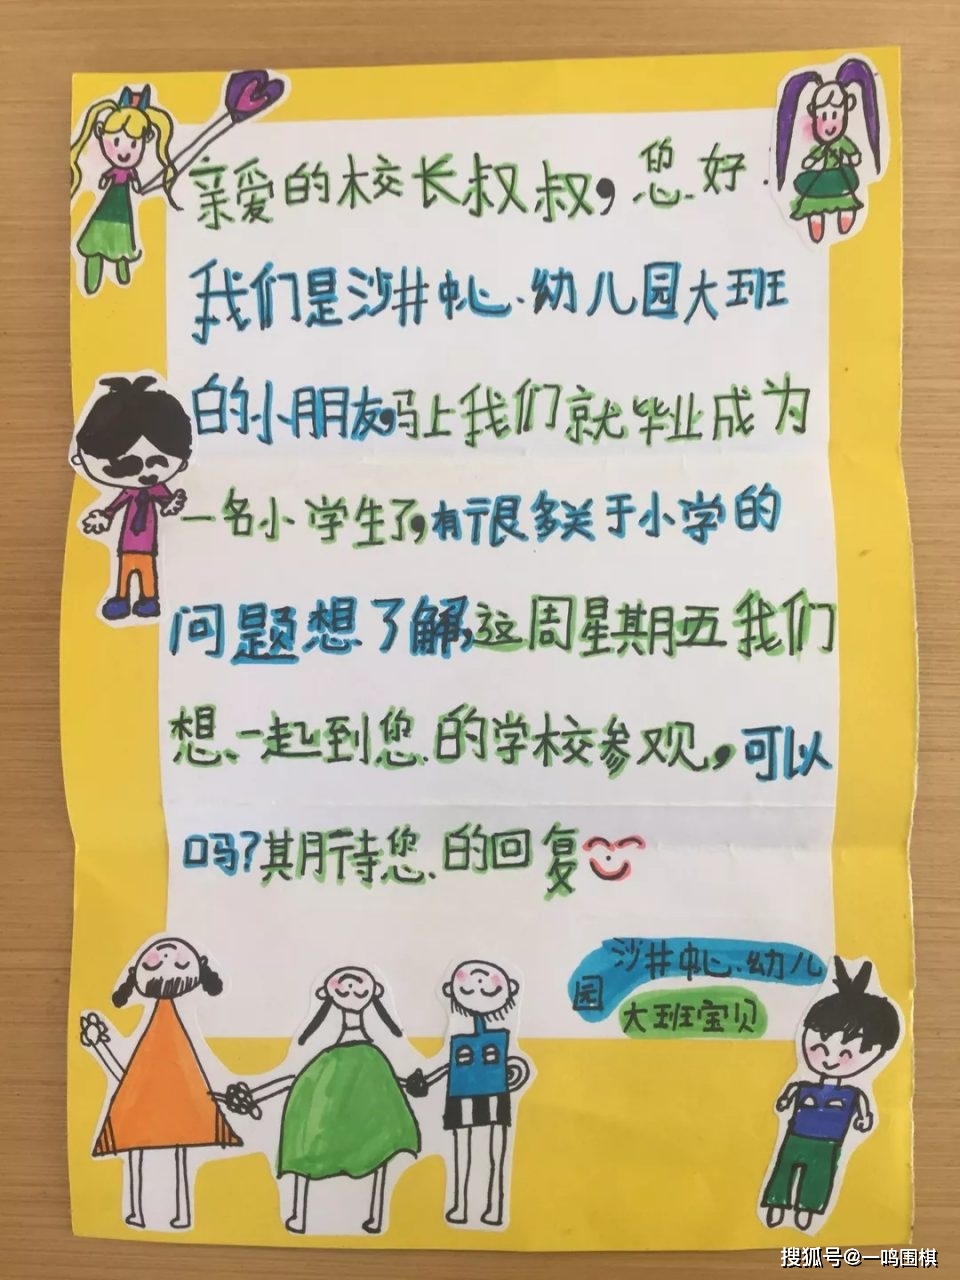 亲爱的校长叔叔，您好.
我们是沙井中心幼儿园大班
的小朋友,马上我们就毕业成为
一名小学生了,有很多关于小学的
问题想了解,这周星期五我们
想一起到您的学校参观，可以
吗?期待您的回复
沙井中心幼儿
园
大班宝贝
搜狐号@一鸣围棋